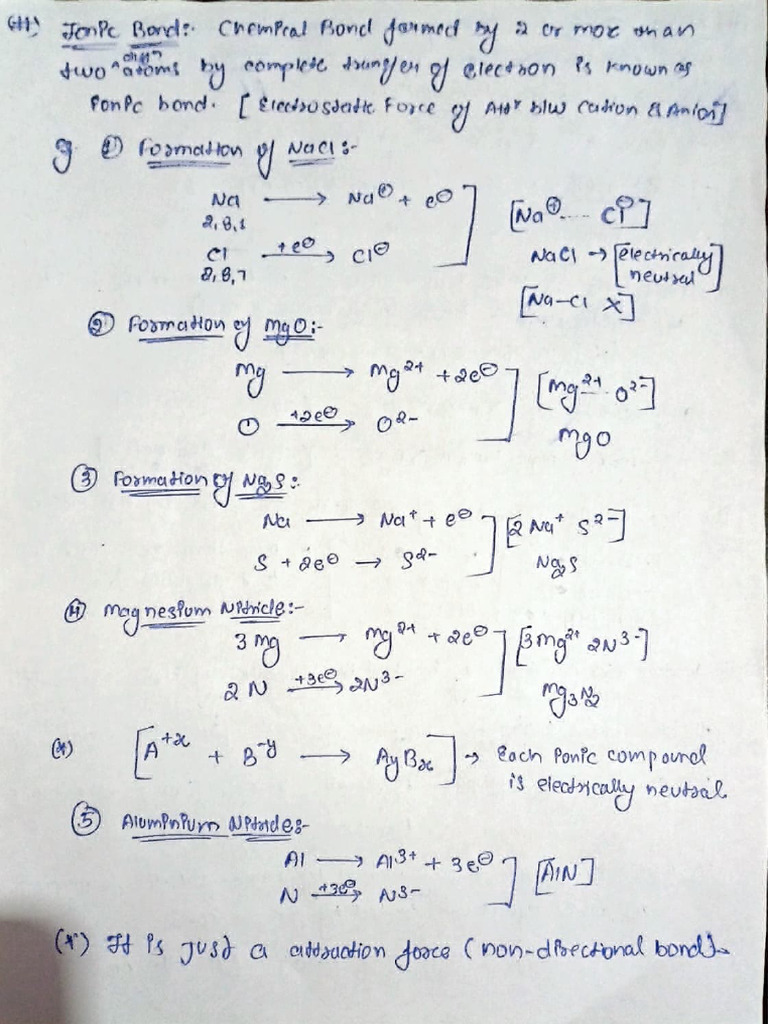 (#) Ionic Bond:- Chemical Bond formed by 2 or more than
two diffⁿ atoms by complete transfer of electron is known as
ionic bond. [Electrostatic Force of Attⁿ b/w cation & Anion]
eg. ① Formation of NaCl :-
Na ⟶ Na⊕ + e⊖ ] [Na⊕ ..... Cl⊖]
2,8,1
Cl +e⊖⟶ Cl⊖ NaCl → [electrically
2,8,7 neutral]
[Na-Cl X]
② Formation of MgO:-
Mg ⟶ Mg²⁺ + 2e⊖ ] [Mg²⁺ ... O²⁻]
O +2e⊖⟶ O²⁻ MgO
③ Formation of Na₂S:-
Na ⟶ Na⁺ + e⊖ ] [2Na⁺ S²⁻]
S + 2e⊖ → S²⁻ Na₂S
④ Magnesium Nitride:-
3Mg ⟶ Mg²⁺ + 2e⊖ ] [3Mg²⁺ 2N³⁻]
2N +3e⊖⟶ 2N³⁻ Mg₃N₂
(*) [A⁺ˣ + B⁻ʸ ⟶ AyBx] → Each ionic compound
is electrically neutral.
⑤ Aluminium Nitride:-
Al ⟶ Al³⁺ + 3e⊖ ] [AlN]
N +3e⊖⟶ N³⁻
(*) It is just a attraction force (non-directional bond).